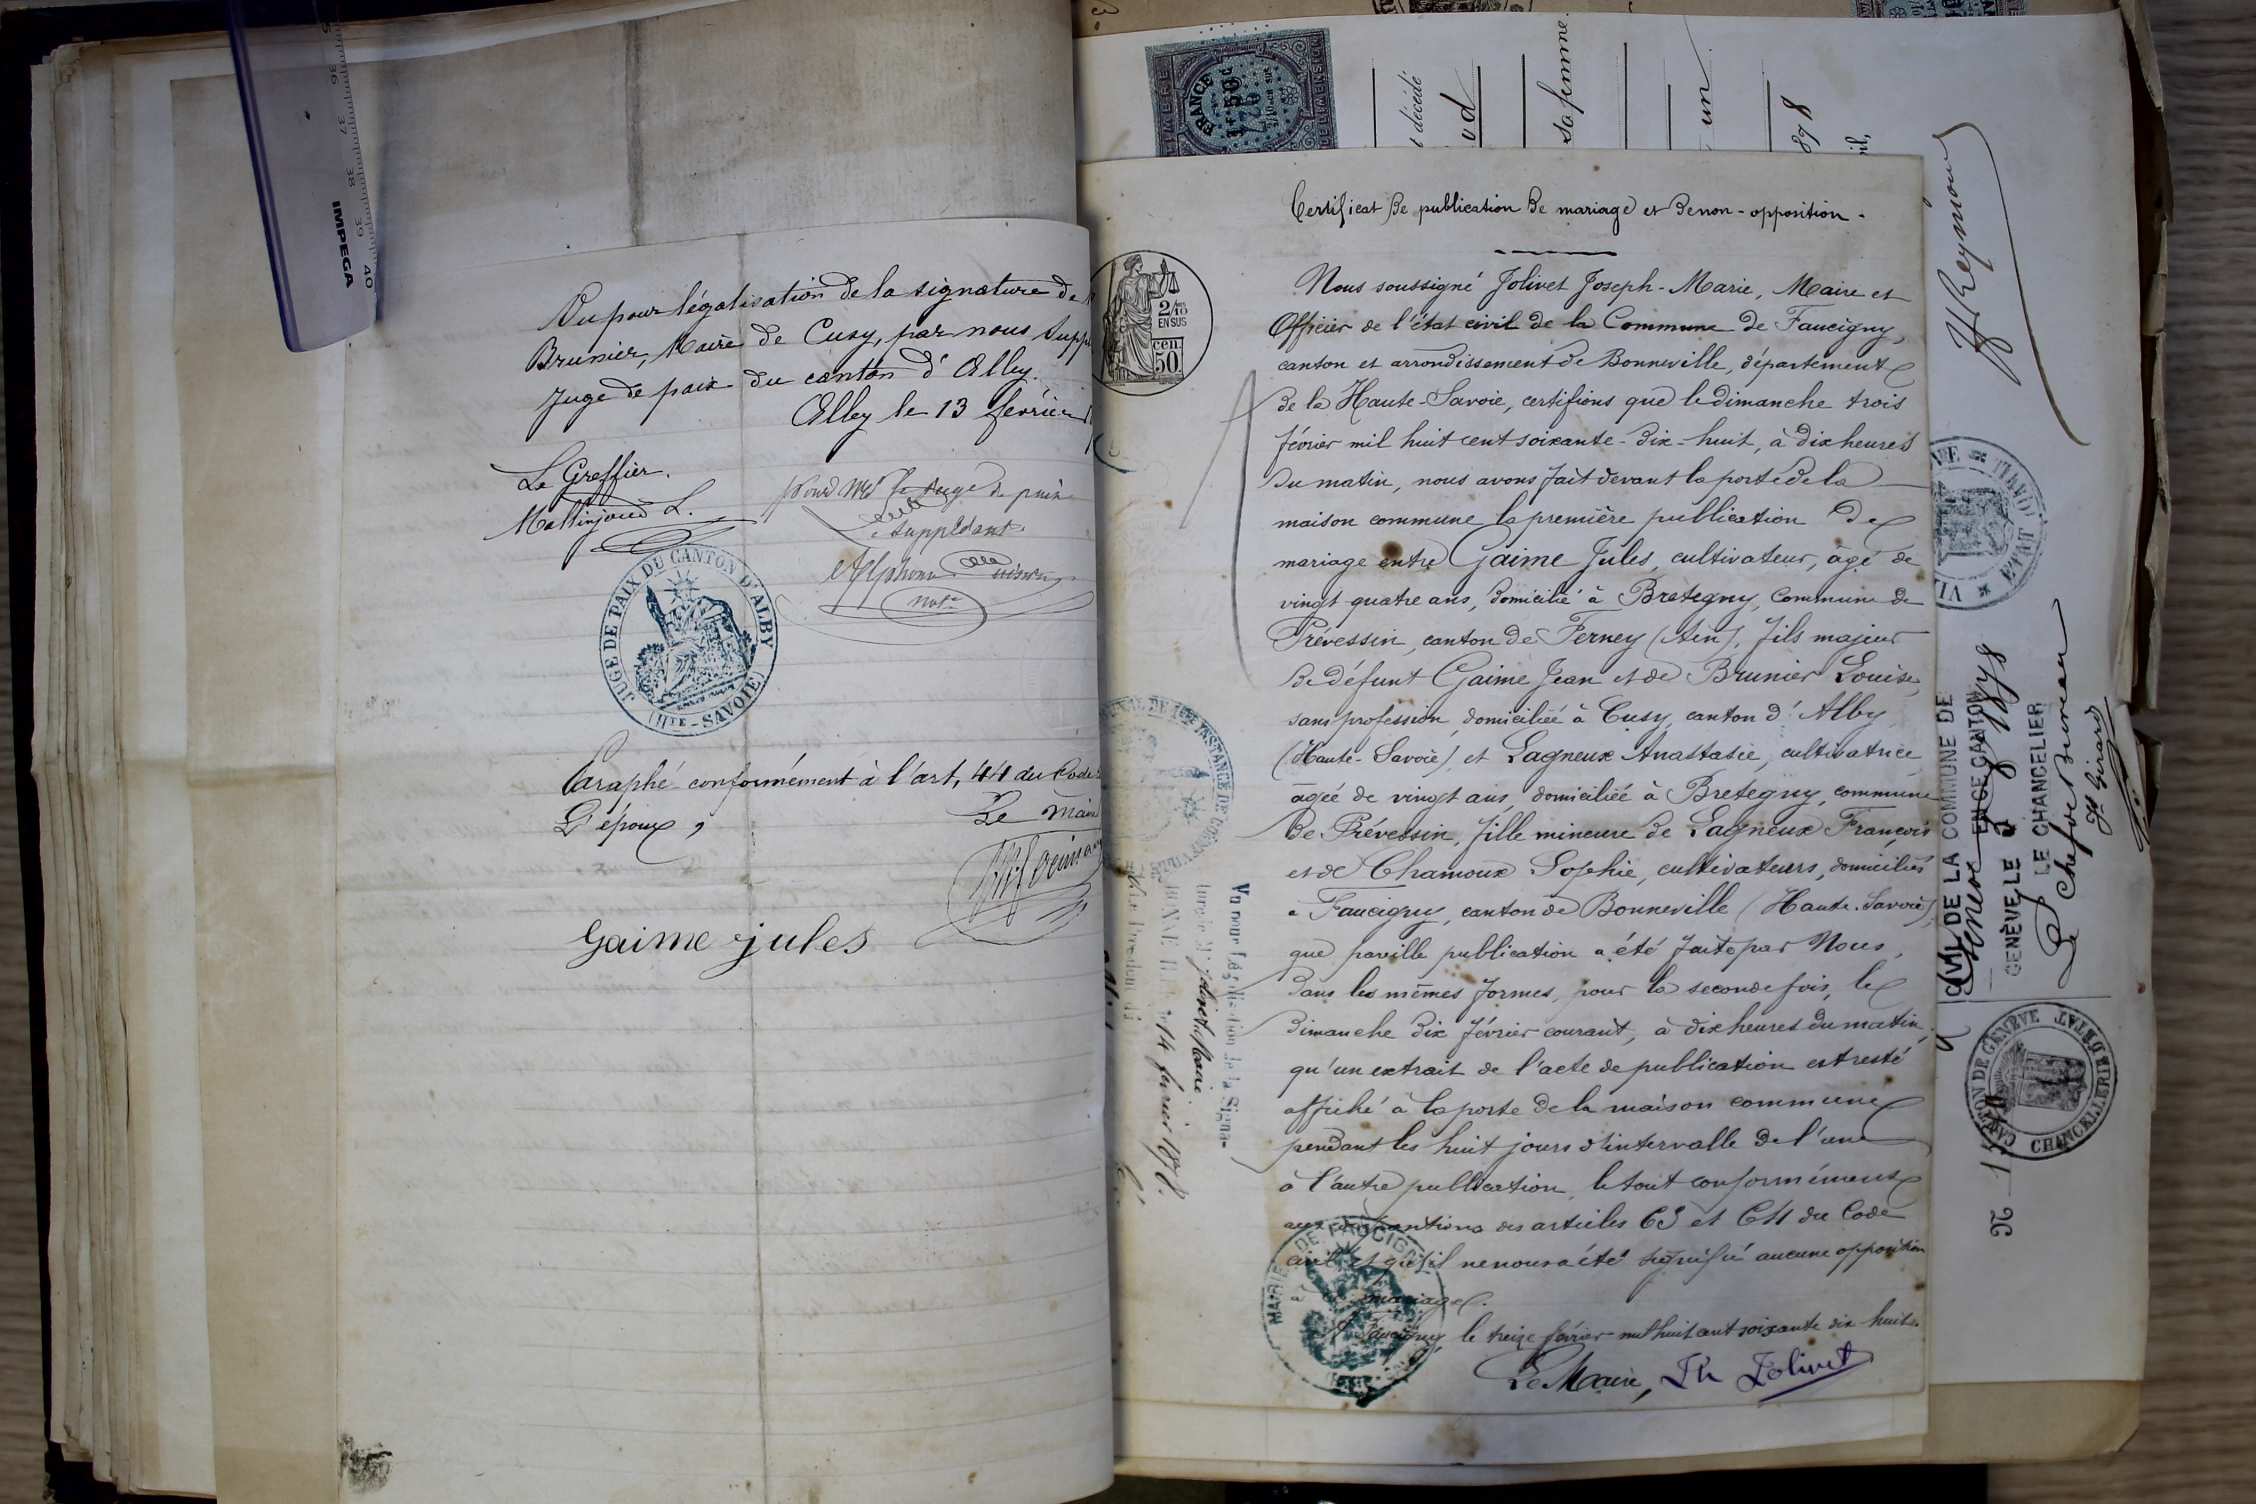 Vu pour légalisation de la signature de
Brunier, Maire de Cusy, par nous Supp
Juge de paix du canton d'Alby.
Alby le 13 février
Le Greffier.
pour Mr le Juge de paix
suppléant
JUGE DE PAIX DU CANTON D'ALBY
(HTE-SAVOIE)
Paraphé conformément à l'art. 44 du Code
L'époux,
Le Maire
Gaime jules
36 37 38 39 40
IMPEGA
FRANCE
décédé
sa femme
un
Certificat de publication de mariage et de non-opposition.
2/10
EN SUS
50 cen.
Nous soussigné Jolivet Joseph-Marie, Maire et
Officier de l'état civil de la Commune de Faucigny,
canton et arrondissement de Bonneville, département
de la Haute-Savoie, certifions que le dimanche trois
février mil huit cent soixante-dix-huit, à dix heures
du matin, nous avons fait devant la porte de la
maison commune la première publication de
mariage entre Gaime Jules, cultivateur, âgé de
vingt quatre ans, domicilié à Bretegny, Commune de
Prévessin, canton de Ferney (Ain), fils majeur
de défunt Gaime Jean et de Brunier Louise,
sans profession, domiciliée à Cusy, canton d'Alby
(Haute-Savoie) et Lagneux Anastasie, cultivatrice,
âgée de vingt ans, domiciliée à Bretegny, commune
de Prévessin, fille mineure de Lagneux François
et de Chamoux Sophie, cultivateurs, domiciliés
à Faucigny, canton de Bonneville (Haute-Savoie),
que pareille publication a été faite par Nous,
dans les mêmes formes, pour la seconde fois, le
dimanche dix février courant, à dix heures du matin,
qu'un extrait de l'acte de publication est resté
affiché à la porte de la maison commune
pendant les huit jours d'intervalle de l'une
à l'autre publication, le tout conformément
aux des articles 63 et 64 du Code
civil et qu'il ne nous a été signifié aucune opposition
mariage.
Faucigny, le treize février mil huit cent soixante dix huit.
Le Maire, Jh Jolivet
MAIRIE DE FAUCIGNY
Vu pour Légalisation de la Signa-
ture de Mr Jolivet Maire
14 février 1878.
CIVIL DE LA COMMUNE DE
Genève EN CE CANTON
GENÈVE, LE 9 1878
P. LE CHANCELIER
Le Chef de Bureau
Jh Girard
CANTON DE GENÈVE
CHANCELLERIE D'ETAT